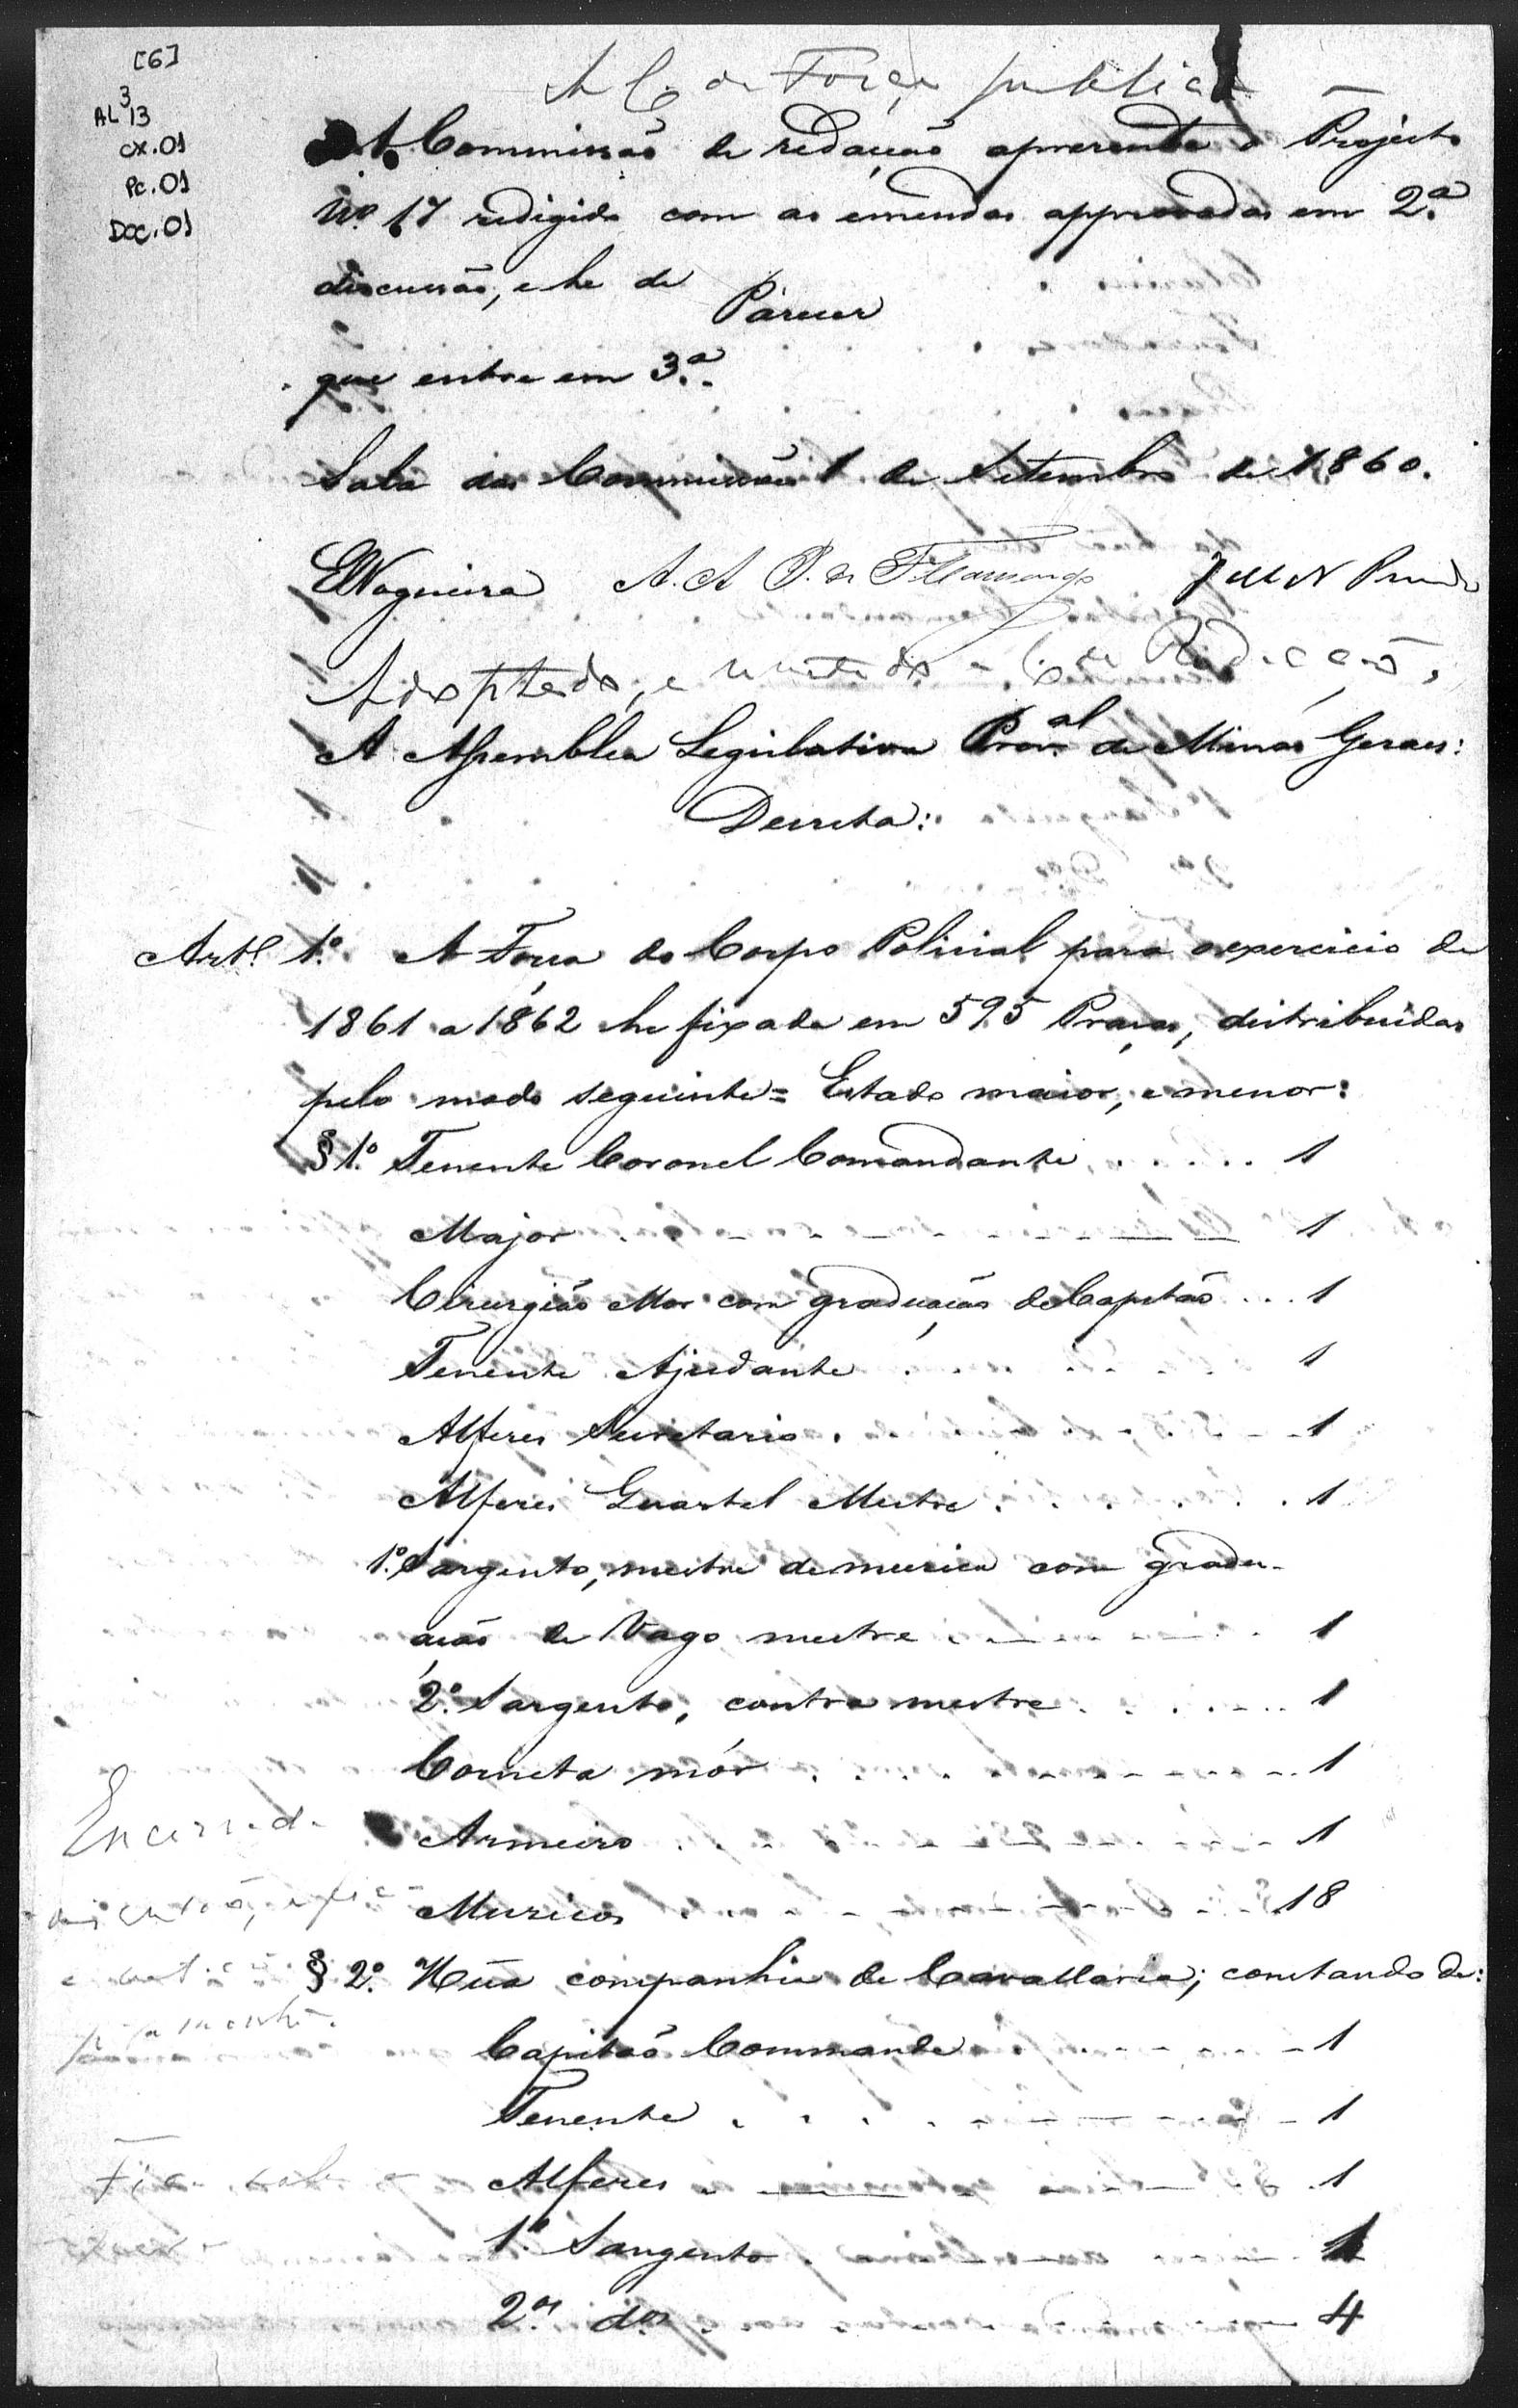 [6]
AL 3 13
CX.01
PC.01
DOC.01
A C. de Força publica
A Commissaõ de redacçaõ apresenta o Projecto
Nº 17 redigido com as emendas approvadas em 2.ª
discussaõ, e he de
Parecer
que entre em 3.ª.
Sala das Commissões 1 de Setembro de 1860.
ENogueira A. A P. de F. Camargo
Adoptado, e remettido a C. de Redacçaõ.
A Assemblea Legislativa Prov.al de Minas Geraes:
Decreta:
Art.º 1.º A Força do Corpo Policial para o exercicio de
1861 a 1862 he fixada em 595 Praças, distribuidas
pelo modo seguinte = Estado maior, e menor:
§ 1.º Tenente Coronel Comandante ..... 1
Major 1
Cirurgiaõ Mor com graduaçaõ de Capitaõ ... 1
Tenente Ajudante 1
Alferes Secretario . 1
Alferes Quartel Mestre . 1
1.º Sargento, mestre de musica com gradu-
açaõ de Vago mestre 1
2.º Sargento, contra mestre 1
Corneta mór 1
Armeiro 1
Musicos 18
§ 2.º Hũa companhia de Cavallaria; constando de:
Capitaõ Commande 1
Tenente 1
Alferes 1
1.º Sargento 1
2.os dos 4
Encerrada